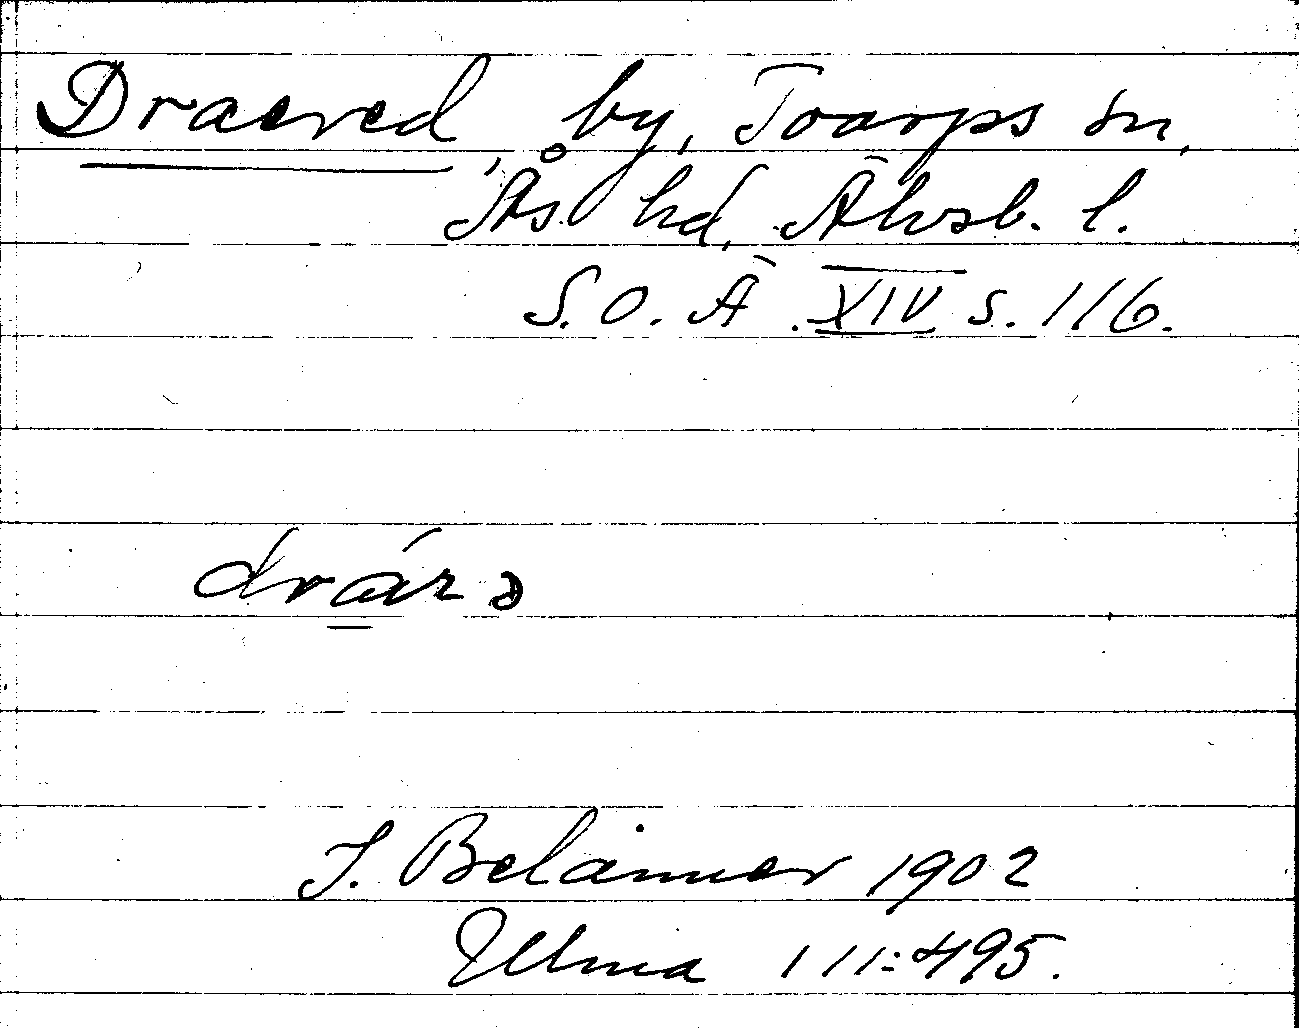 Draered by, Toarps sn,
Ås hd, Älvsb. l.
S.O.Ä. XIV s. 116.
drárə
J. Belänner 1902
Ulma 111:495.